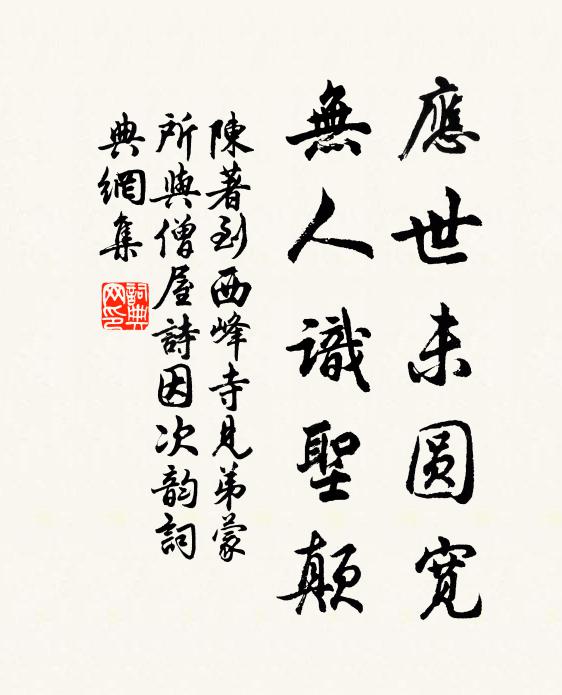 應世未圆寬
無人識聖顛
陳著到西峰寺見弟蒙
所與僧屋詩因次韵詞
典網集
詞典网印